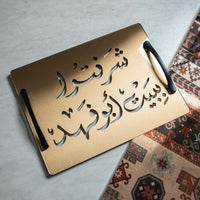 شرفتوا
بيت أبو فهد